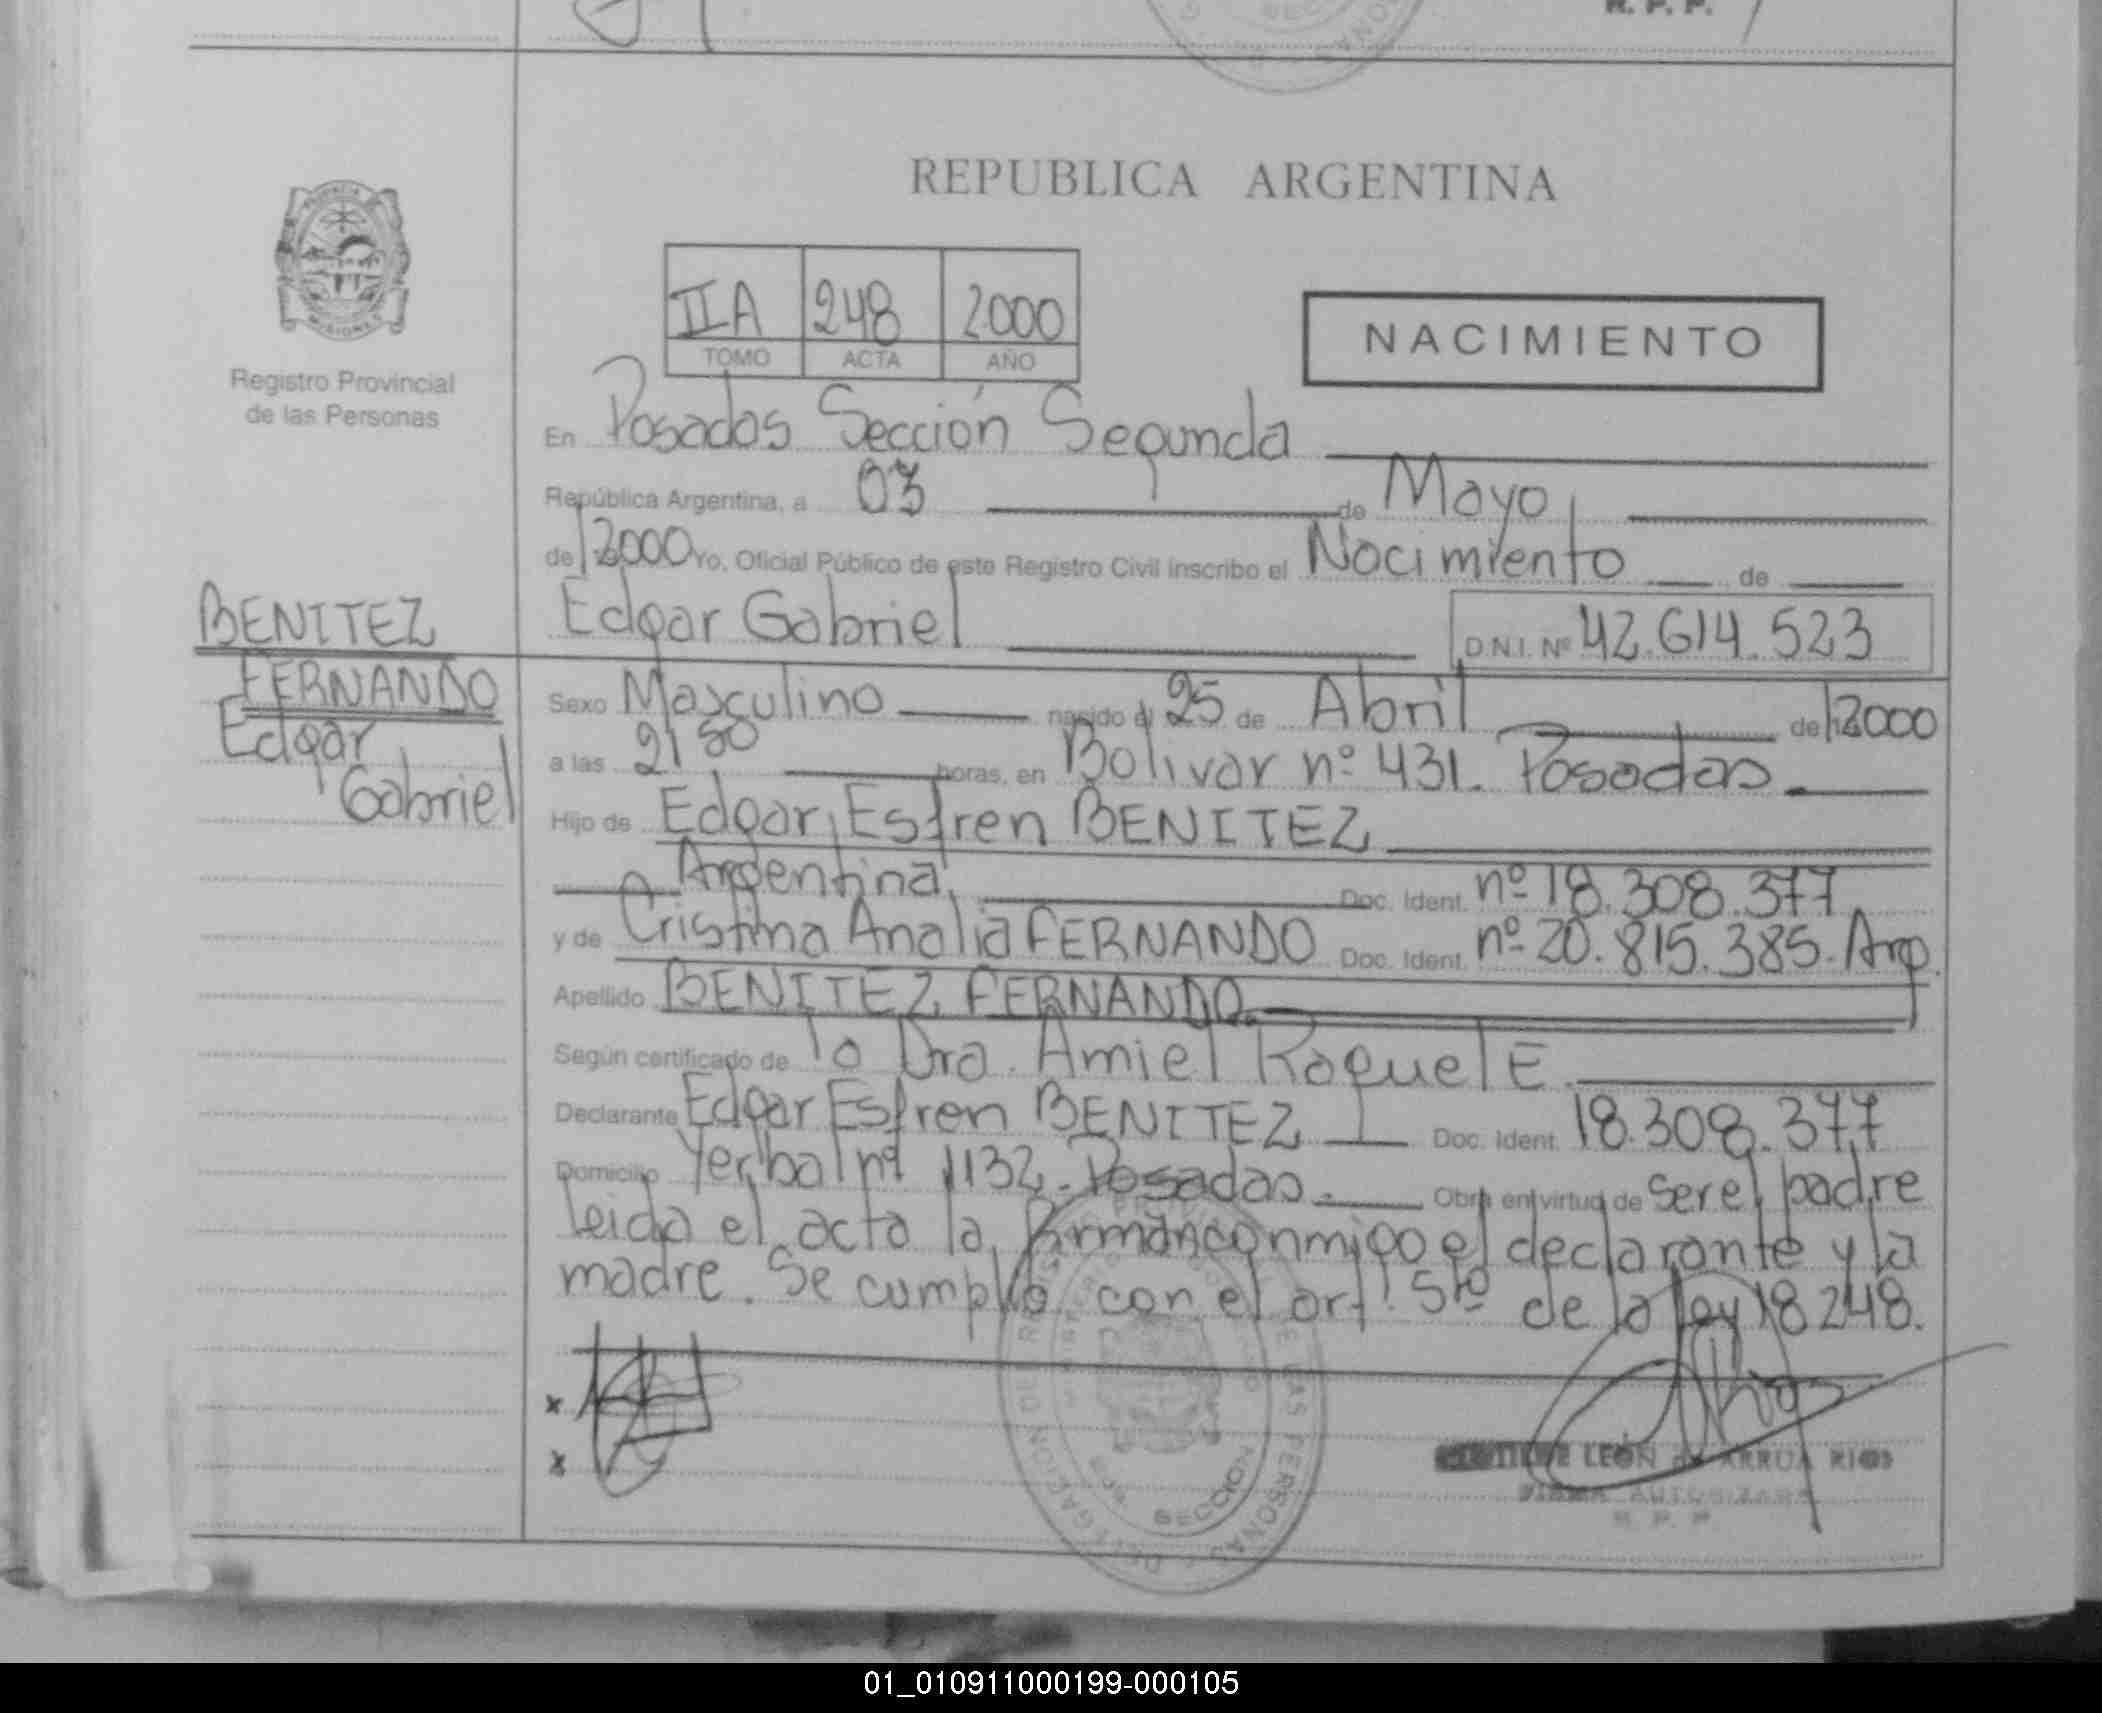 R. P. P.
REPUBLICA ARGENTINA
PROVINCIA
MISIONES
Registro Provincial
de las Personas
IIA 248 2000
TOMO ACTA AÑO
NACIMIENTO
En Posadas Sección Segunda
República Argentina, a 03 de Mayo
de 2000 Yo, Oficial Público de este Registro Civil inscribo el Nacimiento de
Edgar Gabriel D.N.I. Nº 42.614.523
BENITEZ
FERNANDO
Edgar
Gabriel
Sexo Masculino nacido el 25 de Abril de 2000
a las 21 horas, en Bolivar nº 431. Posadas
Hijo de Edgar Esfren BENITEZ
Argentina Doc. Ident. nº 18.308.377
y de Cristina Analia FERNANDO Doc. Ident. nº 20.815.385. Arg.
Apellido BENITEZ FERNANDO
Según certificado de la Dra. Amiel Raquel E.
Declarante Edgar Esfren BENITEZ Doc. Ident. 18.308.377
Domicilio Yerbal nº 1132. Posadas. Obra en virtud de ser el padre
leida el acta la firman conmigo el declarante y la
madre. Se cumplio con el art. 5to de la ley 18248.
x
x
LEÓN de ARRUA RIOS
FIRMA AUTORIZADA
R. P. P.
SECCION
01_010911000199-000105